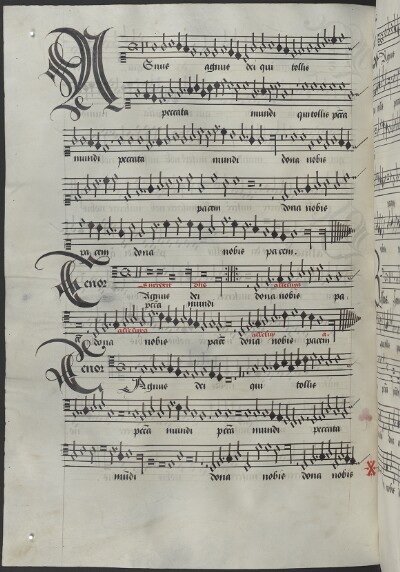 Gnus agnus dei qui tollis
peccata mundi qui tollis pctā
mundi peccata mundi dona nobis
pacem dona nobis
pa cem dona nobis pacem
Tenor
Agnus dei dona nobis pa
pctā mundi
dona nobis pacē dona nobis pacem
Tenor
Agnus dei qui tollis
pctā mundi pctā mundi peccata
mūdi dona nobis dona nobis